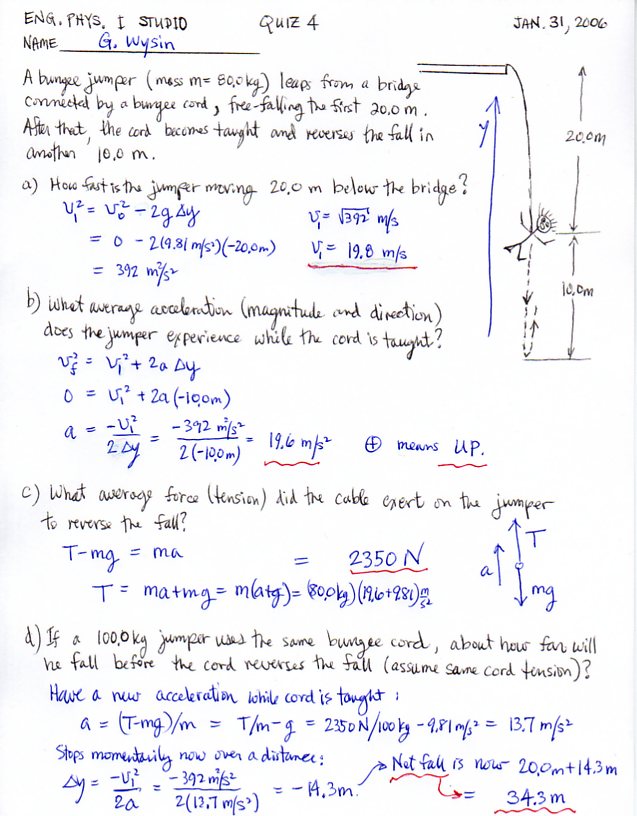 ENG. PHYS. I STUDIO QUIZ 4 JAN. 31, 2006
NAME G. Wysin
A bungee jumper (mass m = 80.0 kg) leaps from a bridge
connected by a bungee cord, free-falling the first 20.0 m.
After that, the cord becomes taught and reverses the fall in
another 10.0 m.
y
20.0 m
10.0 m
a) How fast is the jumper moving 20.0 m below the bridge?
v₁² = v₀² - 2g Δy v₁ = √392 m/s
= 0 - 2(9.81 m/s²)(-20.0m) v₁ = 19.8 m/s
= 392 m²/s²
b) What average acceleration (magnitude and direction)
does the jumper experience while the cord is taught?
v_f² = v₁² + 2a Δy
0 = v₁² + 2a (-10.0m)
a = -v₁²/2Δy = -392 m²/s²/2(-10.0m) = 19.6 m/s² ⊕ means UP.
c) What average force (tension) did the cable exert on the jumper
to reverse the fall?
T - mg = ma = 2350 N
T = ma + mg = m(a+g) = (80.0kg)(19.6+9.81) m/s²
a T mg
d) If a 100.0 kg jumper uses the same bungee cord, about how far will
he fall before the cord reverses the fall (assume same cord tension)?
Have a new acceleration while cord is taught:
a = (T-mg)/m = T/m - g = 2350N/100kg - 9.81 m/s² = 13.7 m/s²
Stops momentarily now over a distance:
Δy = -v₁²/2a = -392 m²/s²/2(13.7 m/s²) = -14.3m.
Net fall is now 20.0m + 14.3m
= 34.3 m